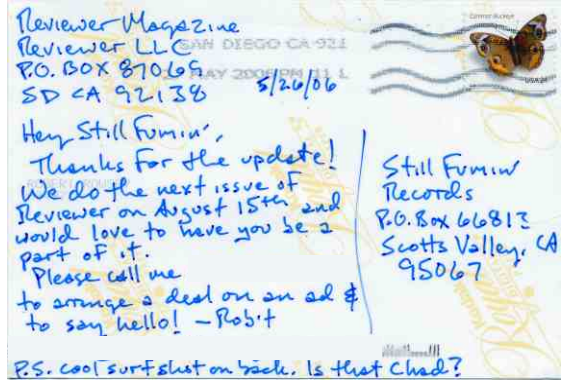 Reviewer Magazine
Reviewer LLC
P.O. BOX 87069
SD CA 92138
SAN DIEGO CA 921
MAY 2006 PM 11 L
5/26/06
Common Buckeye
USA 24
Hey Still Fumin',
Thanks for the update!
We do the next issue of
Reviewer on August 15th and
would love to have you be a
part of it.
Please call me
to arrange a deal on an ad &
to say hello! - Rob't
Still Fumin'
Records
P.O. Box 66813
Scotts Valley, CA
95067
P.S. cool surf shot on back. Is that Chad?